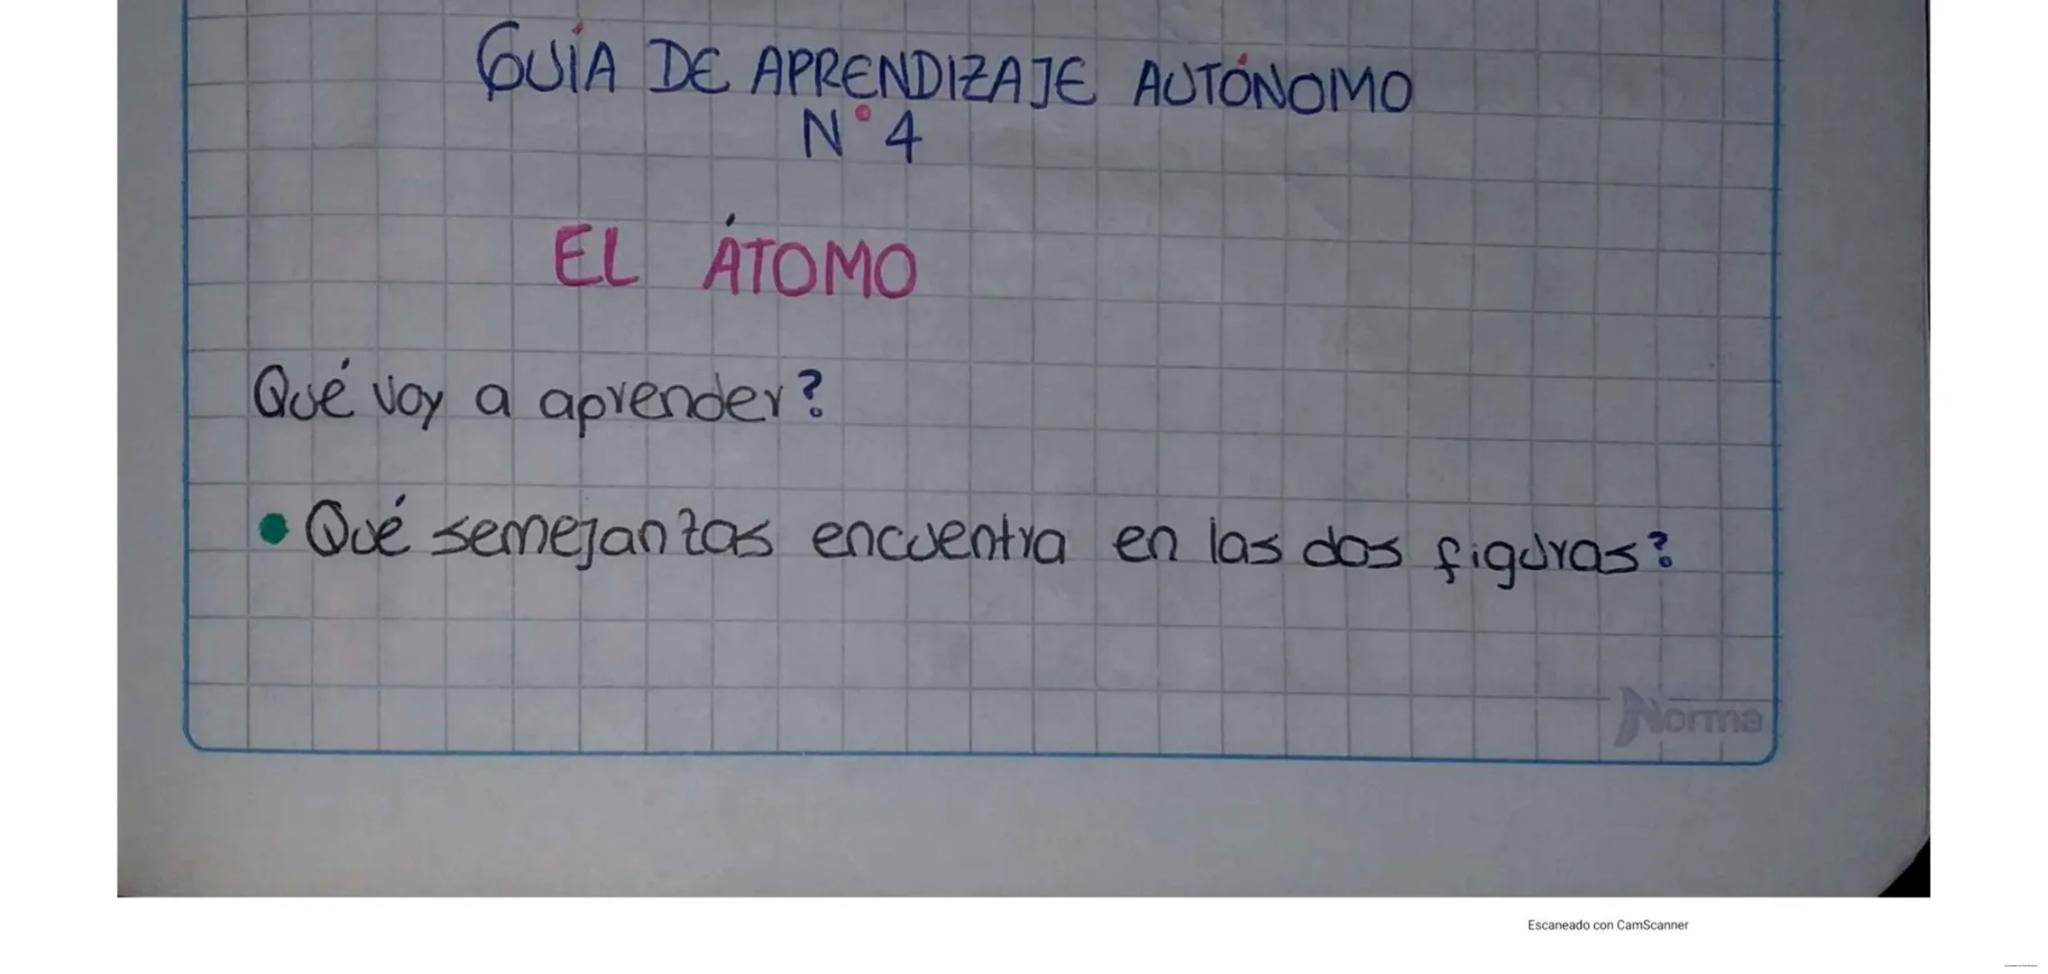 GUÍA DE APRENDIZAJE AUTÓNOMO
N°4
EL ÁTOMO
Qué voy a aprender?
• Qué semejanzas encuentra en las dos figuras?
Norma
Escaneado con CamScanner